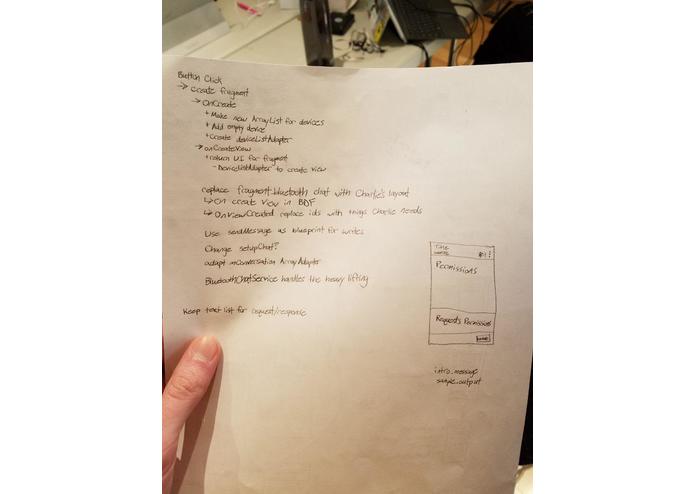 Button Click
→ create fragment
→ OnCreate
+ Make new ArrayList for devices
+ Add empty device
+ Create deviceListAdapter
→ onCreateView
+ return UI for fragment
- DeviceListAdapter to create view
replace fragment_bluetooth chat with Charlie's layout
↳ on create view in BDF
↳ OnViewCreated replace ids with things Charlie needs
Use sendMessage as blueprint for writes
Change setupChat?
adapt mConversation ArrayAdapter
BluetoothChatService handles the heavy lifting
Keep text list for request/response
Title
Permissions
Requests Permission
intro_message
sample_output